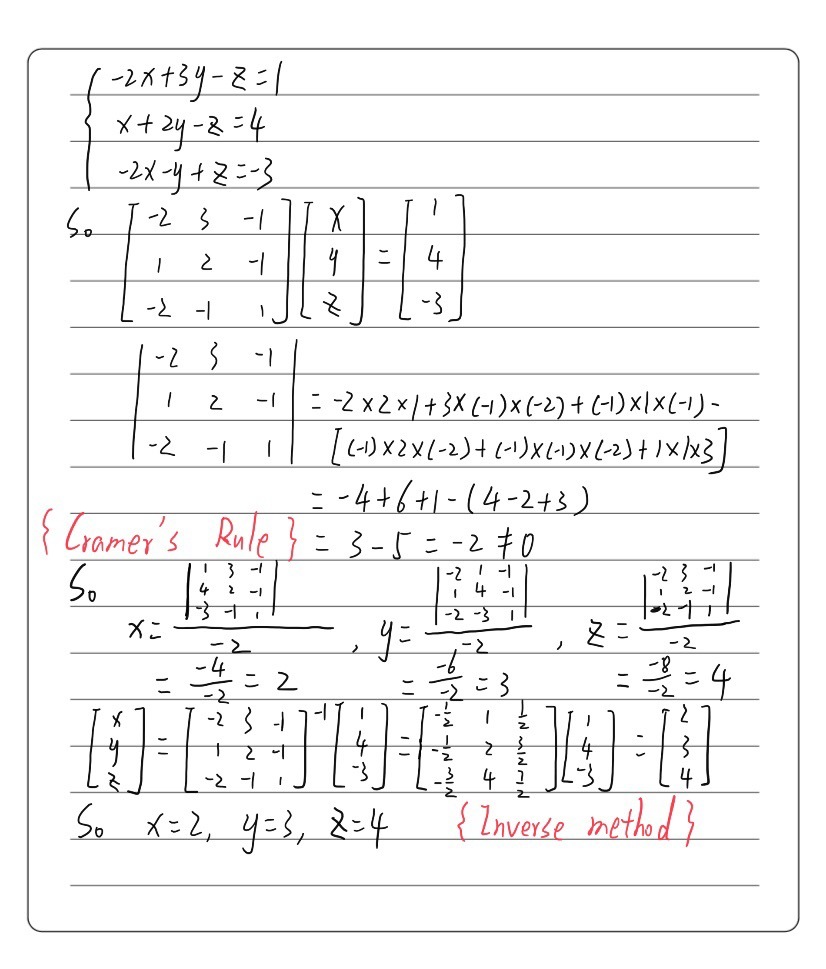 { -2x+3y-z=1
x+2y-z=4
-2x-y+z=-3
So [ -2 3 -1 ] [ x ] = [ 1 ]
[ 1 2 -1 ] [ y ] = [ 4 ]
[ -2 -1 1 ] [ z ] [ -3 ]
| -2 3 -1 |
| 1 2 -1 | = -2×2×1+3×(-1)×(-2)+(-1)×1×(-1)-
| -2 -1 1 | [(-1)×2×(-2)+(-1)×(-1)×(-2)+1×1×3]
= -4+6+1-(4-2+3)
{Cramer's Rule} = 3-5=-2≠0
So x= | 1 3 -1 | | 4 2 -1 | | -3 -1 1 | / -2 , y= | -2 1 -1 | | 1 4 -1 | | -2 -3 1 | / -2 , z= | -2 3 -1 | | 1 2 -1 | | -2 -1 1 | / -2
= -4/-2 = 2 = -6/-2 = 3 = -8/-2 = 4
[ x y z ] = [ -2 3 -1 | 1 2 -1 | -2 -1 1 ]⁻¹ [ 1 4 -3 ] = [ -1/2 1 1/2 | -1/2 2 3/2 | -3/2 4 7/2 ] [ 1 4 -3 ] = [ 2 3 4 ]
So x=2, y=3, z=4 {Inverse method}